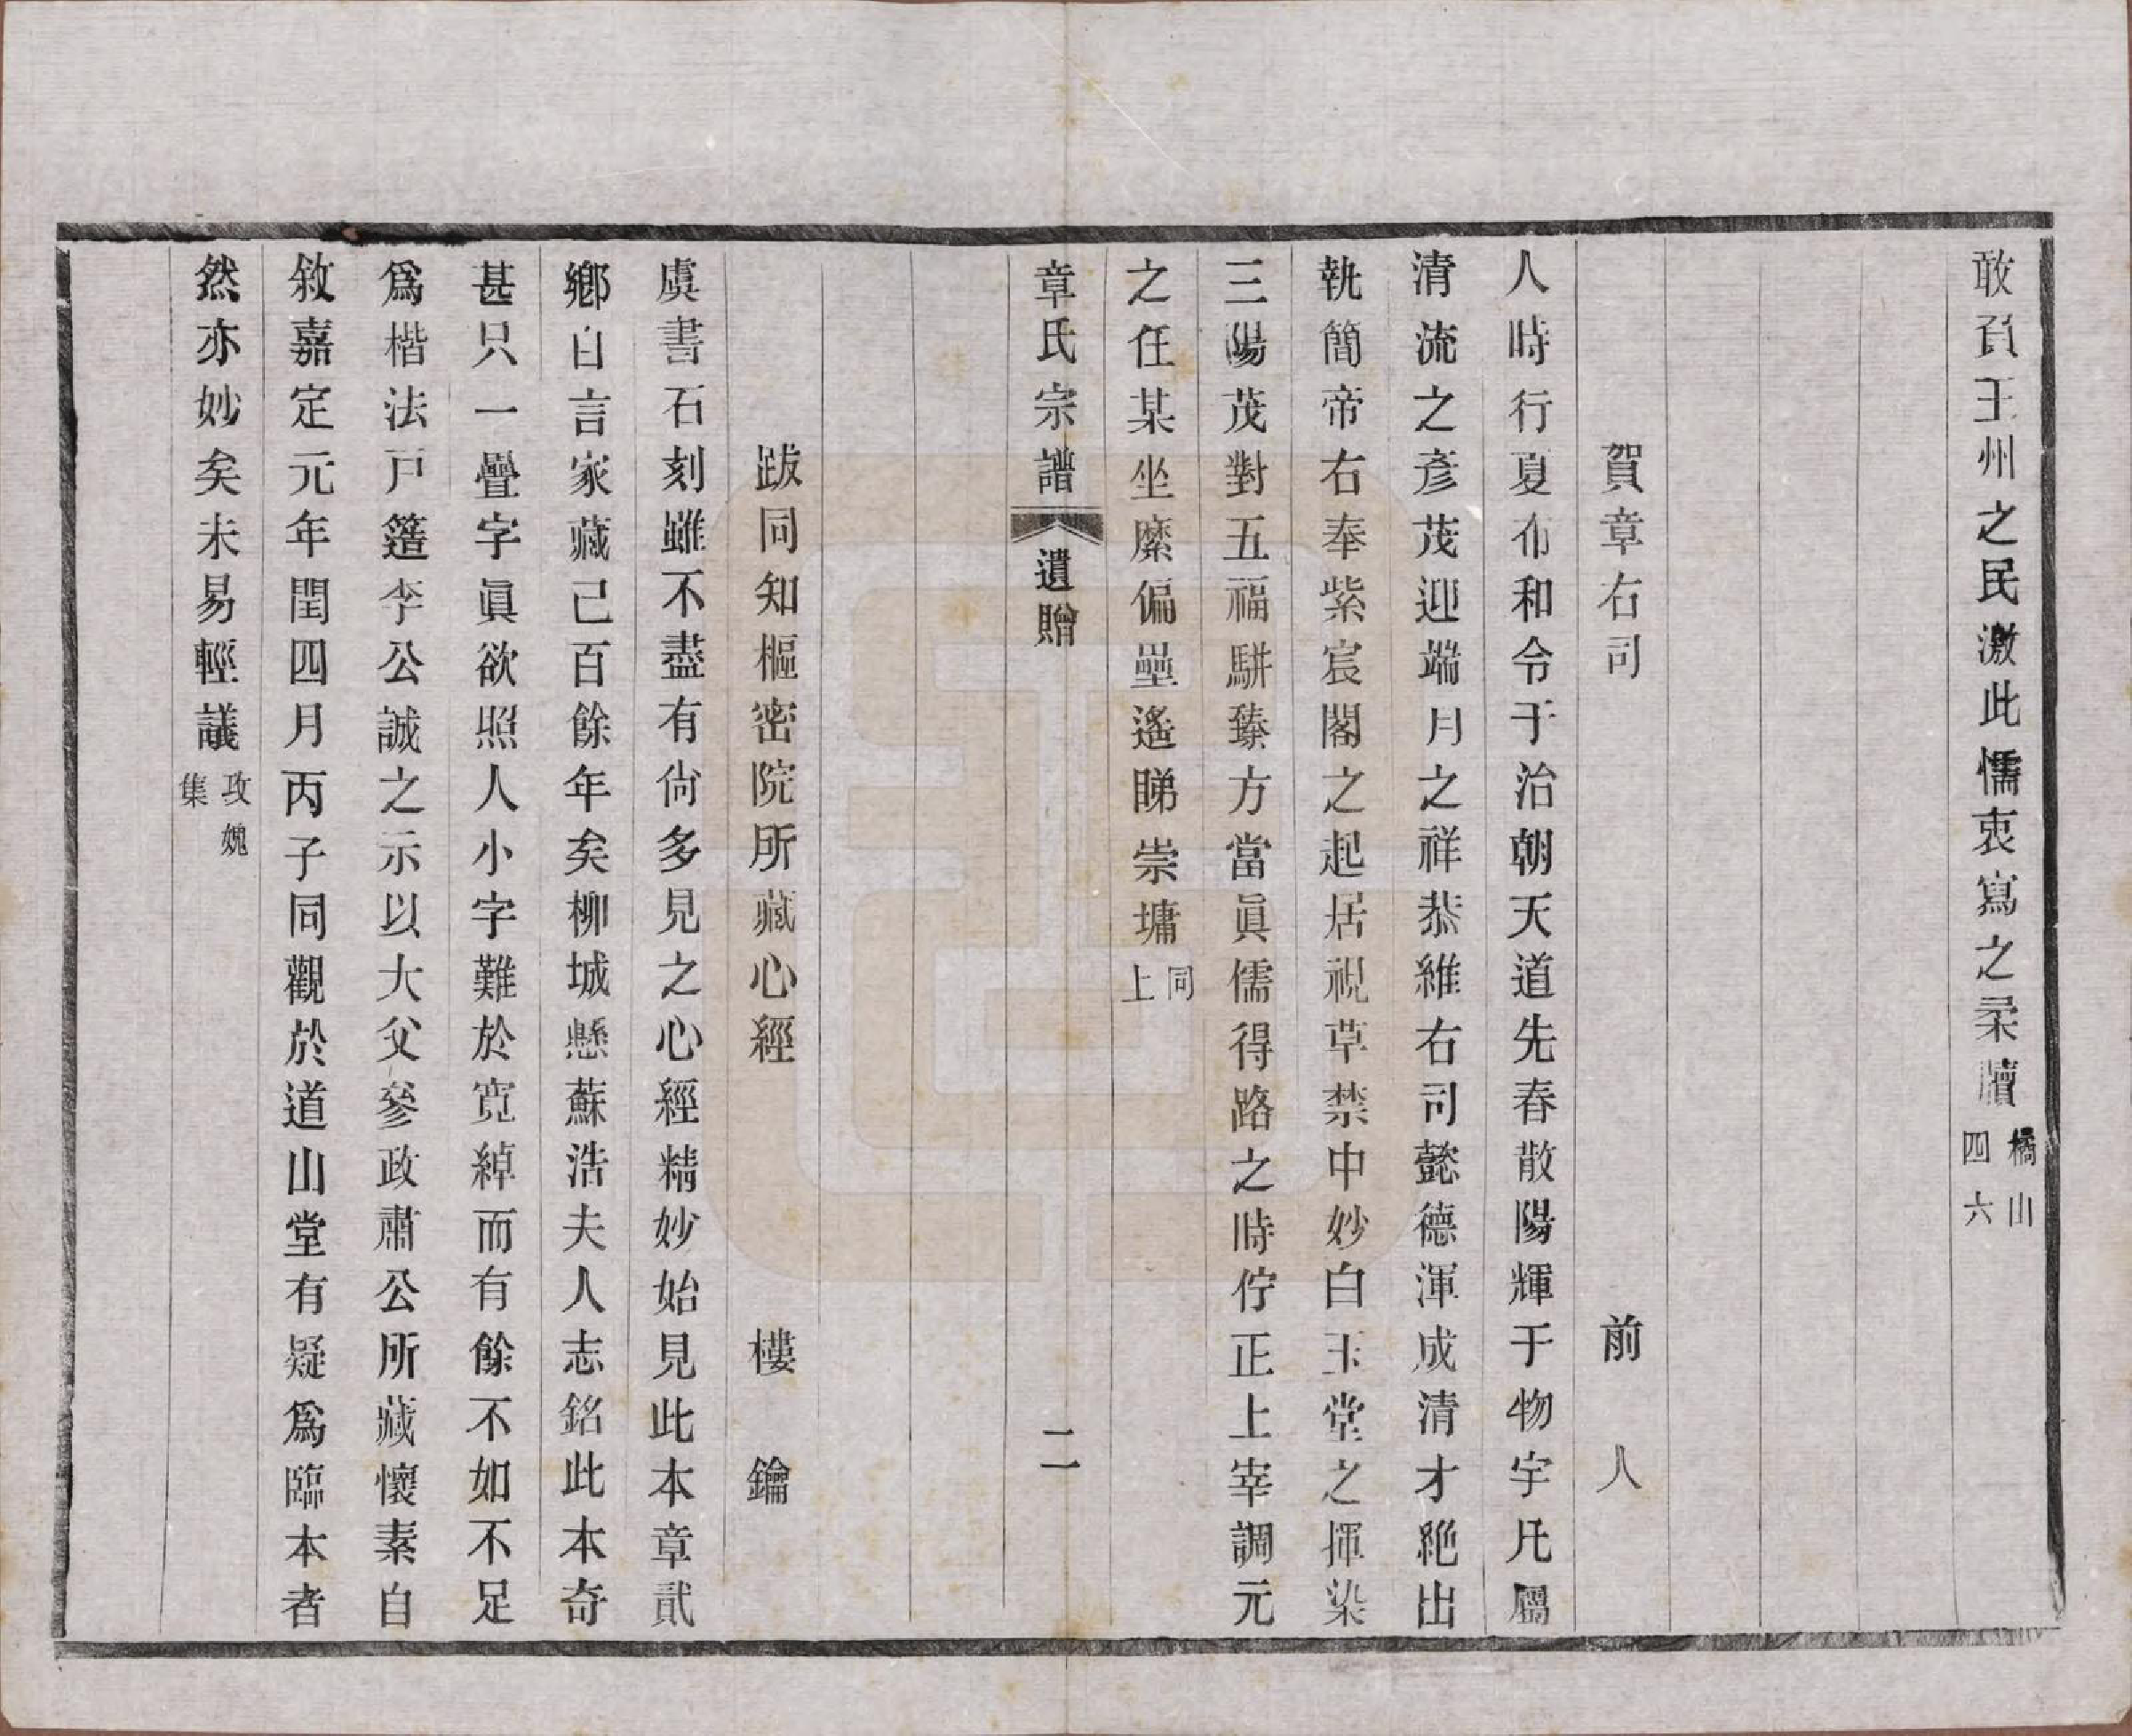 敢負王州之民激此懦衷寫之柔牘橘山四六
賀章右司　前人
人時行夏布和令于治朝天道先春散陽輝于物宇凡屬
清流之彥茂迎端月之祥恭維右司懿德渾成清才絕出
執簡帝右奉紫宸閣之起居視草禁中妙白玉堂之揮染
三陽茂對五福駢臻方當眞儒得路之時佇正上宰調元
之任某坐縻偏壘遙睇崇墉同上
章氏宗譜　遺贈　二
跋同知樞密院所藏心經　樓鑰
虞書石刻雖不盡有尙多見之心經精妙始見此本章貳
鄉自言家藏已百餘年矣柳城懸蘇浩夫人志銘此本奇
甚只一疊字眞欲照人小字難於寬綽而有餘不如不足
爲楷法戸簉李公誠之示以大父參政肅公所藏懷素自
敘嘉定元年閏四月丙子同觀於道山堂有疑爲臨本者
然亦妙矣未易輕議攻媿集